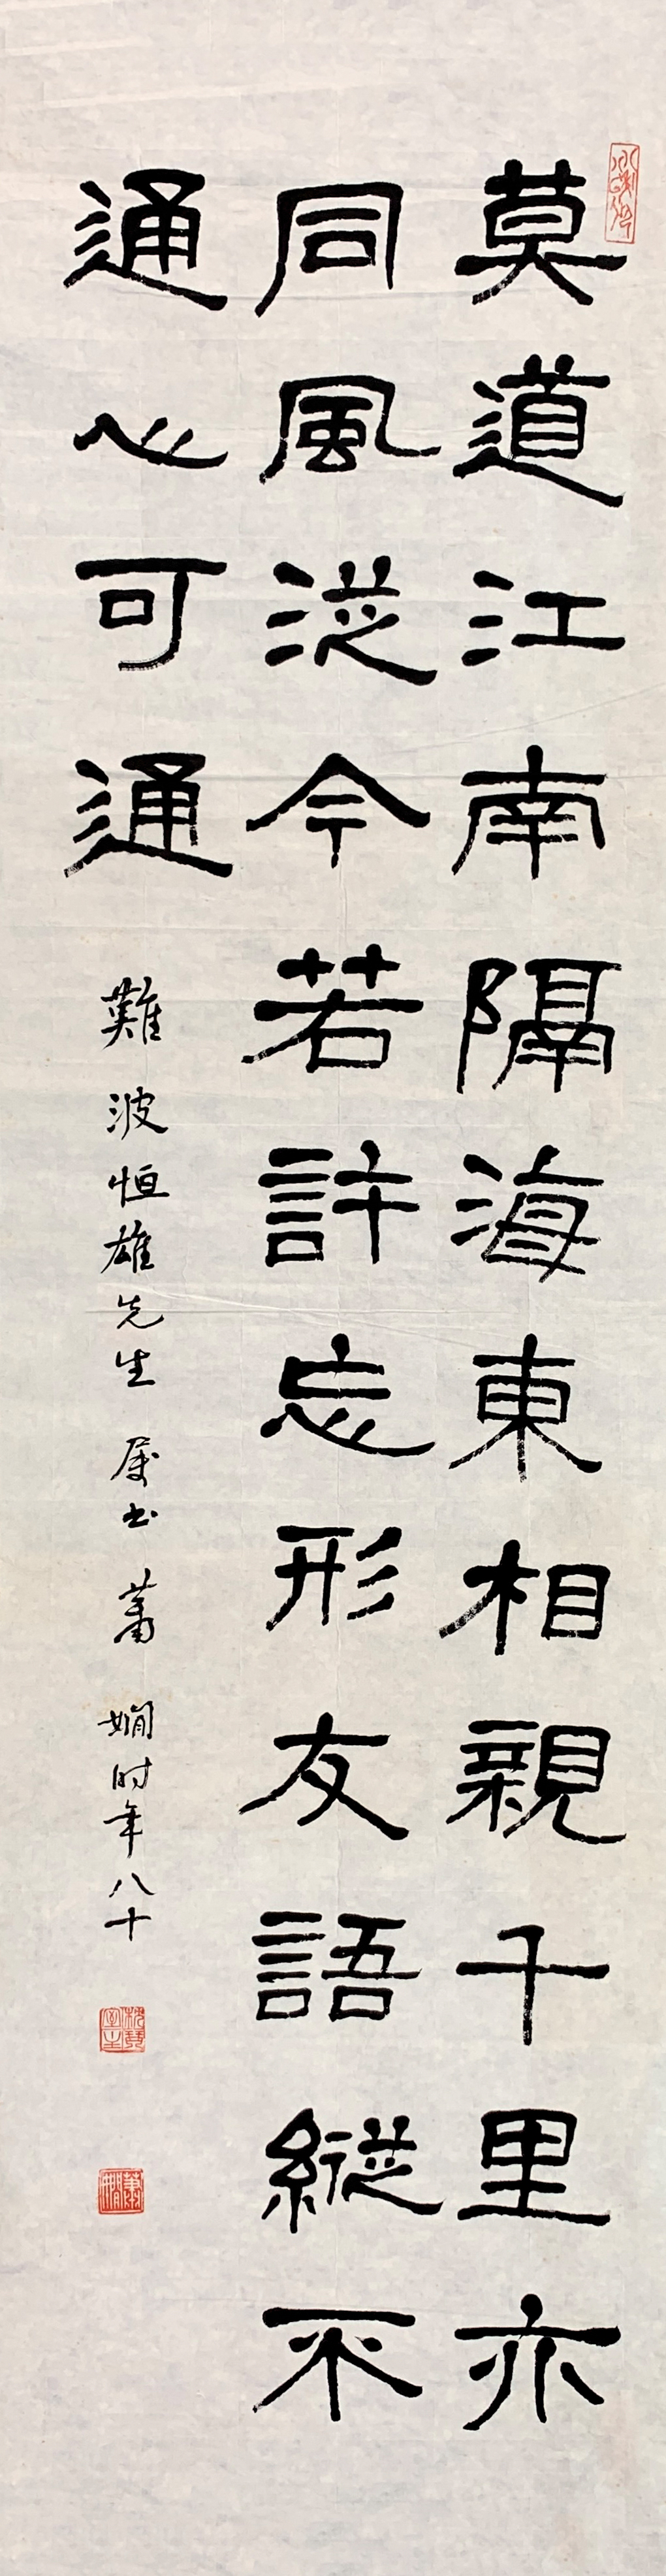 莫道江南隔海東相親千里亦
同風從今若許忘形友語縱不
通心可通
難波恒雄先生 属书 萧 嫻时年八十
枕琴室主
蕭嫻